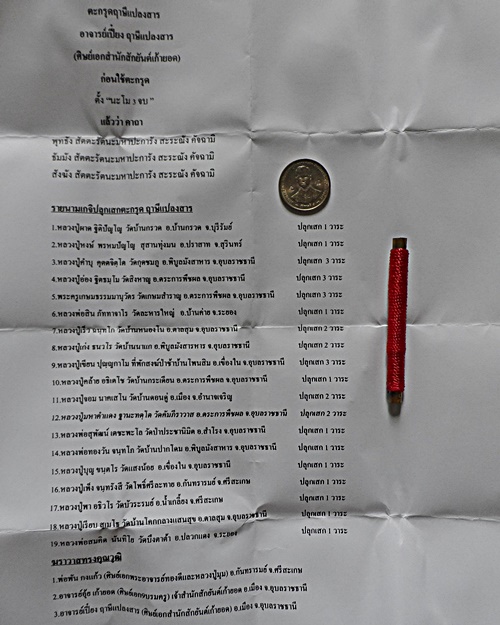 ตะกรุดฤาษีแปลงสาร
อาจารย์เปี่ยง ฤาษีแปลงสาร
(ศิษย์เอกสำนักสักยันต์เก้ายอด)
ก่อนใช้ตะกรุด
ตั้ง "นะโม 3 จบ"
แล้วว่า คาถา
พุทธัง สัตตะรัตนะมหาปะการัง สะระณัง คัจฉามิ
ธัมมัง สัตตะรัตนะมหาปะการัง สะระณัง คัจฉามิ
สังฆัง สัตตะรัตนะมหาปะการัง สะระณัง คัจฉามิ
รายนามเกจิปลุกเสกตะกรุด ฤาษีแปลงสาร
1.หลวงปู่ผาด ฐิติปัญโญ วัดบ้านกรวด อ.บ้านกรวด จ.บุรีรัมย์ ปลุกเสก 1 วาระ
2.หลวงปู่หงษ์ พรหมปัญโญ สุสานทุ่งมน อ.ปราสาท จ.สุรินทร์ ปลุกเสก 1 วาระ
3.หลวงปู่คำบุ คุตตจิตโต วัดกุดชมภู อ.พิบูลมังสาหาร จ.อุบลราชธานี ปลุกเสก 3 วาระ
4.หลวงปู่อ่อง ฐิตธมฺโม วัดสิงหาญ อ.ตระการพืชผล จ.อุบลราชธานี ปลุกเสก 3 วาระ
5.พระครูเกษมธรรมมานุวัตร วัดเกษมสำราญ อ.ตระการพืชผล จ.อุบลราชธานี ปลุกเสก 3 วาระ
6.หลวงพ่อสิน ภัททาจาโร วัดละหารใหญ่ อ.บ้านค่าย จ.ระยอง ปลุกเสก 1 วาระ
7.หลวงปู่เร็ว ฉนฺทโก วัดบ้านหนองโน อ.ตาลสุม จ.อุบลราชธานี ปลุกเสก 2 วาระ
8.หลวงปู่เก่ง ธนวโร วัดบ้านนาแก อ.พิบูลมังสาหาร จ.อุบลราชธานี ปลุกเสก 2 วาระ
9.หลวงปู่เขียน ปุญฺญกาโม ที่พักสงฆ์ป่าช้าบ้านโพนสิม อ.เขื่องใน จ.อุบลราชธานี ปลุกเสก 3 วาระ
10.หลวงปู่คล้าย อธิเตโช วัดบ้านกระเดียน อ.ตระการพืชผล จ.อุบลราชธานี ปลุกเสก 1 วาระ
11.หลวงปู่จอม นาคเสโน วัดบ้านดอนดู่ อ.เมือง จ.อำนาจเจริญ ปลุกเสก 2 วาระ
12.หลวงปู่มหาคำแดง ฐานะทตฺโต วัดคัมภีราวาส อ.ตระการพืชผล จ.อุบลราชธานี ปลุกเสก 2 วาระ
13.หลวงพ่อสุพัฒน์ เตชะพะโล วัดป่าประชานิมิต อ.สำโรง จ.อุบลราชธานี ปลุกเสก 1 วาระ
14.หลวงพ่อทองวัน จนฺทโก วัดบ้านปากโดม อ.พิบูลมังสาหาร จ.อุบลราชธานี ปลุกเสก 1 วาระ
15.หลวงปู่บุญ วัดแสงน้อย อ.เขื่องใน จ.อุบลราชธานี ปลุกเสก 1 วาระ
16.หลวงปู่เพ็ง จนฺทรังสี วัดโพธิ์ศรีละทาย อ.กันทรารมย์ จ.ศรีสะเกษ ปลุกเสก 1 วาระ
17.หลวงปู่พา อธิวโร วัดบัวระรมย์ อ.น้ำเกลี้ยง จ.ศรีสะเกษ ปลุกเสก 1 วาระ
18.หลวงปู่เรียบ วัดบ้านโคกกลางแสนสุข อ.ตาลสุม จ.อุบลราชธานี ปลุกเสก 1 วาระ
19.หลวงพ่อสมคิด นันทิโย วัดบึงตาต้า อ.ปลวกแดง จ.ระยอง ปลุกเสก 1 วาระ
ฆราวาสทรงคุณวุฒิ
1.พ่อพัน กงแก้ว (ศิษย์เอกพระอาจารย์ทองดีและหลวงปู่มุม) อ.กันทรารมย์ จ.ศรีสะเกษ
2.อาจารย์อุ้ย เก้ายอด (ศิษย์เอกบรมครู) เจ้าสำนักสักยันต์เก้ายอด อ.เมือง จ.อุบลราชธานี
3.อาจารย์เปี่ยง ฤาษีแปลงสาร (ศิษย์เอกสำนักสักยันต์เก้ายอด) อ.เมือง จ.อุบลราชธานี